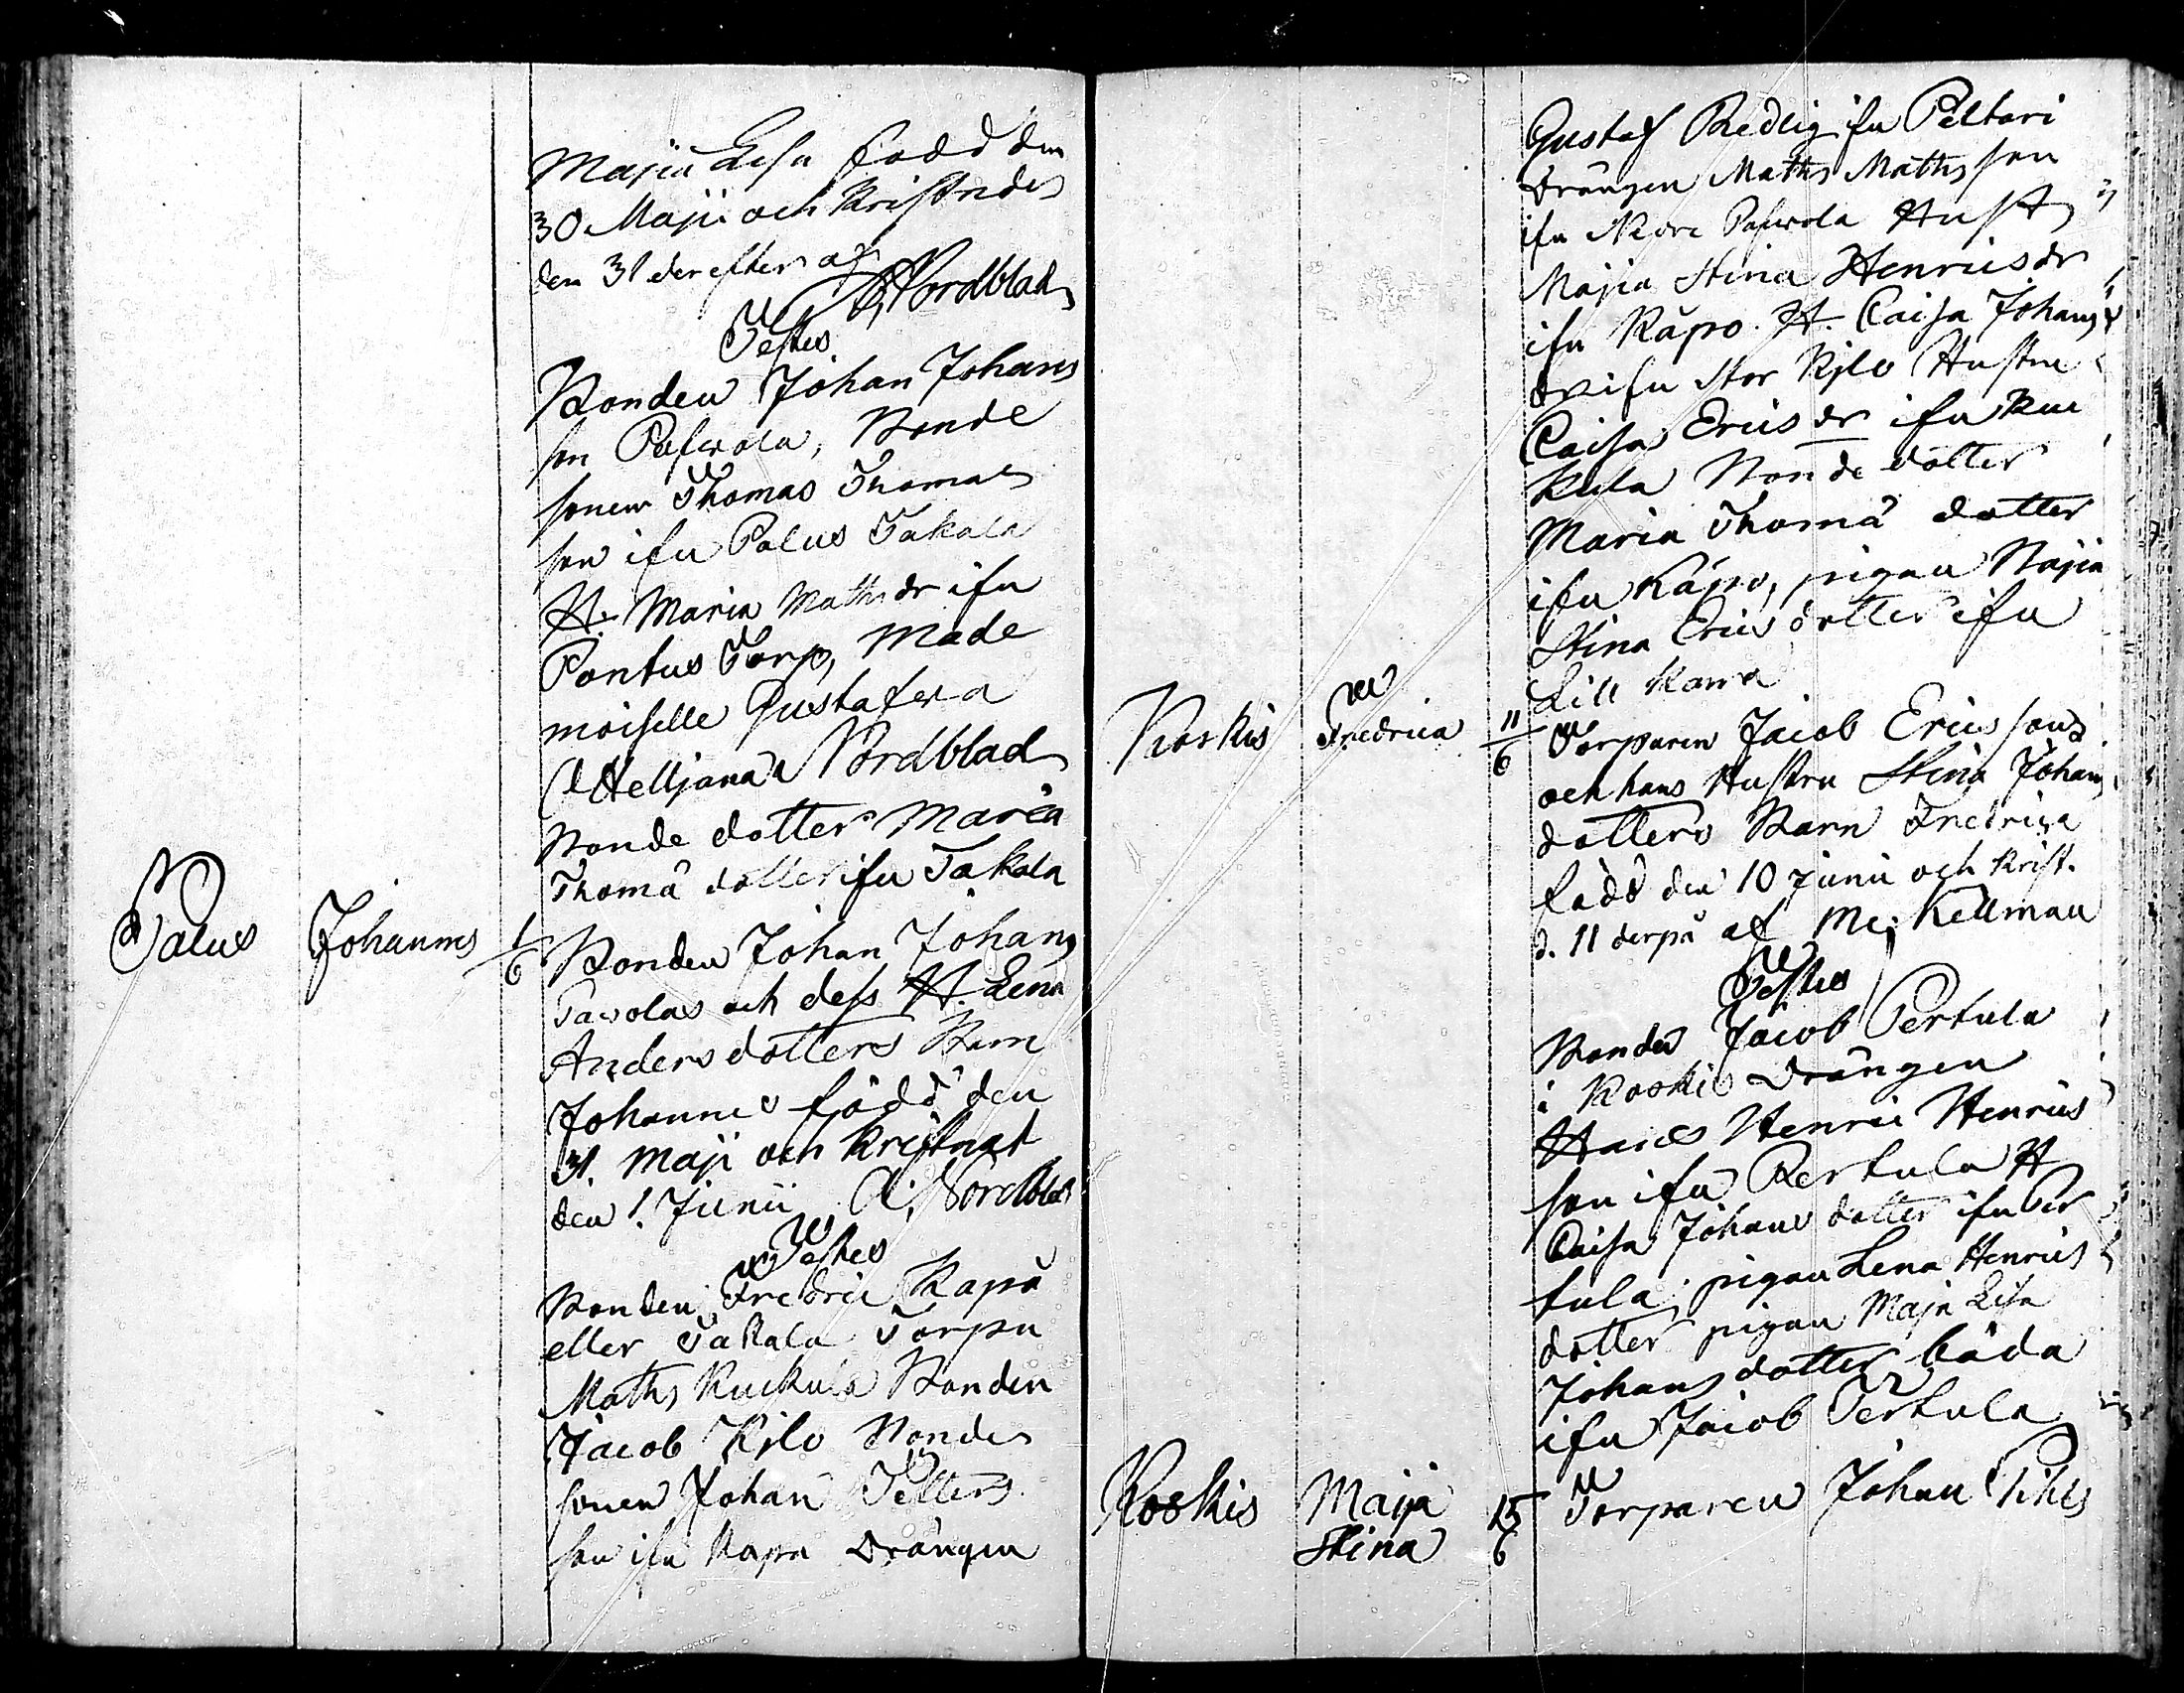 Majia Lisa född den
30 Maji och Kristndes
den 31 der efter af
A Nordblad
Testes
Bonden Johan Johans
son Pafwola, Bonde
sonen Thomas Thomas
son ifrn Palus Takala
H. Maria Maths dr ifrn
Pontus Torp, Made
moiselle Gustafwa
Nordblad
Bonde dotter Maria
Thomä dotter ifrn Takala
Palus Johannes 1/6 Bonden Johan Johans
Pavolas och dess H. Lena
Anders dotters Barn
Johannes född den
31. Maji och Kristnat
den 1. Junii A; Nordblad
Testes
Bonden Fredric Kapå
eller Takala Torpn
Maths Kuckula Bonden
Jacob Kylo Bonde
sonen Johan Petters
son ifrn Kapa Drängen
Gustaf Redlig ifrn Peltari
Drängen Maths Maths son
ifrn Pafwola Hust
Majia Stina Henrics dr
ifrn Kåpo. H. Caisa Johans
dr ifrn Stor Kylo Hustru
Caisa Erics dr ifrn Kuc
kula Bonde dotter
Maria Thomä dotter
ifrn Kåpo, pigan Majia
Stina Erics dotter ifrn
Lill
Koskis Fredrica 11/6 Torparen Jacob Ericssons
och hans Hustru Stina Johans
dotters Barn Fredrica
född den 10 Junii och Krist.
d. 11 derpå af Me; Kellman
Testes
Bonden Jacob Pertula
i Koskis Drängen
Henric Henrics
son ifrn Pertula H
Caisa Johans dotter ifrn Per
tula, pigan Lena Henrics
dotter pigan Maja Lisa
Johans dotter båda
ifrn Jacob Pertula
Koskis Maija 15/6 Torparen Johan Pihls
Stina